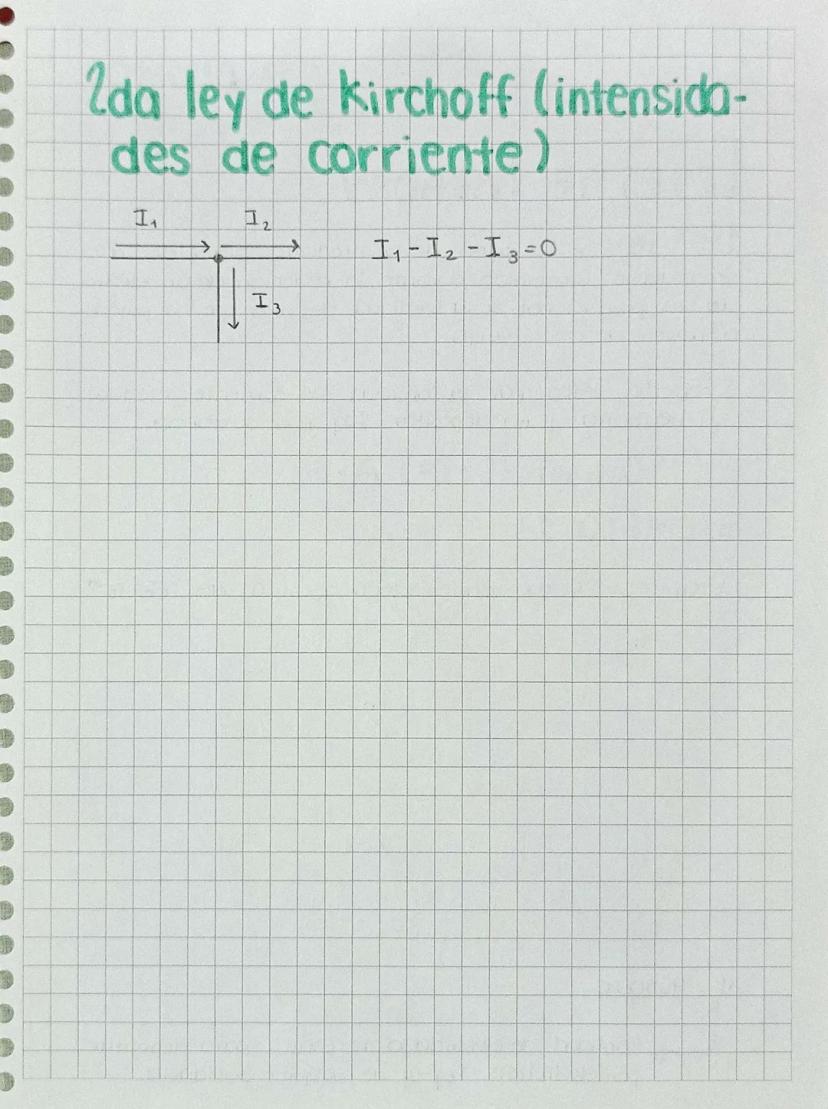 2da ley de Kirchoff (intensida-
des de corriente)
I₁ I₂
I₁ - I₂ - I₃ = 0
I₃